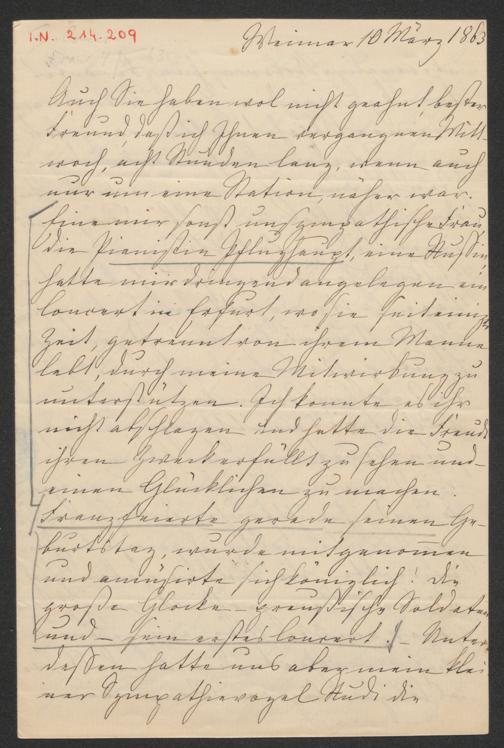 I.N. 214.209
Weimar 10 März 1863
Auch Sie haben wol nicht geahnt, bester
Freund, daß ich Ihnen vergangnen Mitt-
woch, acht Stunden lang, wenn auch
nur um eine Station, näher war.
Eine mir sonst unsympathische Frau
die Pianistin Pflughaupt, eine Russin
hatte mir dringend angelegen ein
Concert in Erfurt, wo sie seit einig
Zeit, getrennt von ihrem Manne
lebt, durch meine Mitwirkung zu
unterstützen. Ich konnte es ihr
nicht abschlagen und hatte die Freude
ihren Zweck erfüllt zu sehen und
einen Glücklichen zu machen.
Franz feierte gerade seinen Ge-
burtstag, wurde mitgenommen
und amüsirte sich königlich! Die
große Glocke – preußische Soldaten
und – sein erstes Concert! – Unter
dessen hatte uns aber mein klei
ner Sympathievogel Rudi die